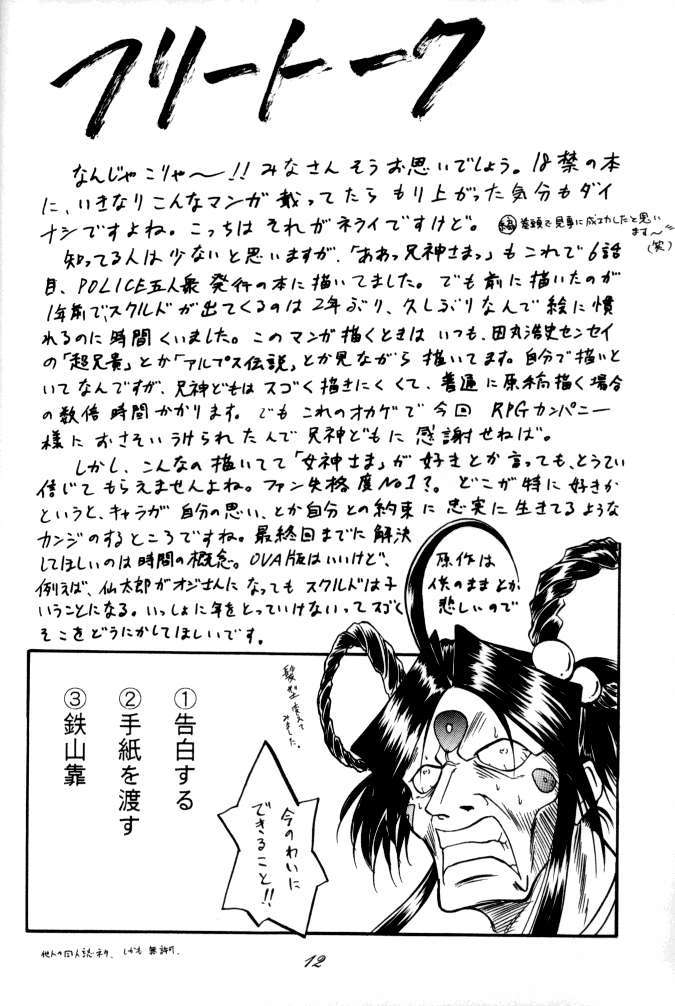 フリートーク
なんじゃこりゃ〜!! みなさんそうお思いでしょう。18禁の本
に、いきなりこんなマンガ載ってたらもり上がった気分もダイ
ナシですよね。こっちはそれがネライですけど。
編 巻頭で見事に成功したと思い
ます〜
(笑)
知ってる人は少ないと思いますが、「ああっ兄神さまっ」もこれで6話
目、POLICE五人衆発行の本に描いてました。でも前に描いたのが
1年前で、スクルドが出てくるのは2年ぶり、久しぶりなんで絵に慣
れるのに時間くいました。このマンガ描くときはいつも、田丸浩史センセイ
の「超兄貴」とか「アルプス伝説」とか見ながら描いてます。自分で描いと
いてなんですが、兄神どもはスゴく描きにくくて、普通に原稿描く場合
の数倍時間かかります。でもこれのオカゲで今回RPGカンパニー
様におさそいうけられたんで兄神どもに感謝せねば。
しかし、こんなの描いてて「女神さま」が好きとか言っても、とうてい
信じてもらえませんよね。ファン失格度No1?。どこが特に好きか
というと、キャラが自分の思い、とか自分との約束に忠実に生きてるような
カンジのするところですね。最終回までに解決
してほしいのは時間の概念。OVA版はいいけど、原作は
例えば、仙太郎がオジさんになってもスクルドは子供のままとか
いうことになる。いっしょに年をとっていけないってスゴく悲しいので
そこをどうにかしてほしいです。
髪型変えて
みました。
今のわいに
できること!!
①告白する
②手紙を渡す
③鉄山靠
他人の同人誌ネタ。しかも無許可。
12